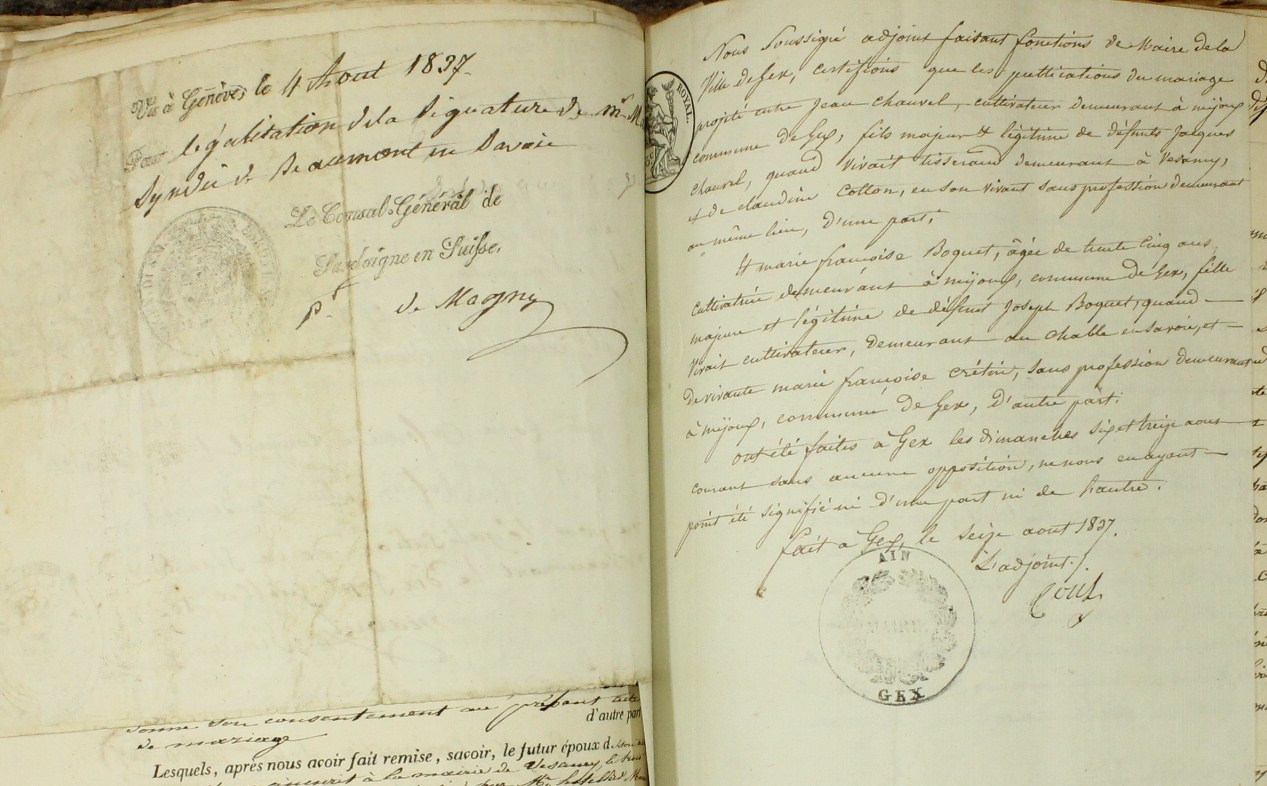 Vu à Genève, le 4 Aout 1837.
Pour légalisation de la Signature de Mr M
Syndic de Beaumont en Savoie
Le Consul-Général de
Sardaigne en Suisse,
pr. de Magny
donne son consentement au présent acte
de mariage
d'autre part
Lesquels, après nous avoir fait remise, savoir, le futur époux d
à la mairie de Vesancy, le
ROYAL.
Nous Soussigné adjoint faisant fonctions de Maire de la
Ville de Gex, certifions que les publications du mariage
projeté entre Jean Chauvel, cultivateur demeurant à mijoux
commune de Gex, fils majeur et légitime de défunts Jacques
Chauvel, quand vivait tisserand demeurant à Vesancy,
et de claudine Cotton, en son vivant sans profession demeurant
au même lieu, d'une part;
Et marie françoise Boquet, âgée de trente cinq ans,
cultivatrice demeurant à mijoux, commune de Gex, fille
majeure et légitime de défunt Joseph Boquet, quand
vivait cultivateur, demeurant au Chable en Savoie, et
de vivante marie françoise Crétin, sans profession demeurant
à mijoux, commune de Gex, d'autre part:
ont été faites à Gex les dimanches six et treize aout
courant sans aucune opposition, ne nous en ayant
point été signifié ni d'une part ni de l'autre.
fait à Gex, le seize aout 1837.
L'adjoint.
AIN
MAIRIE
GEX